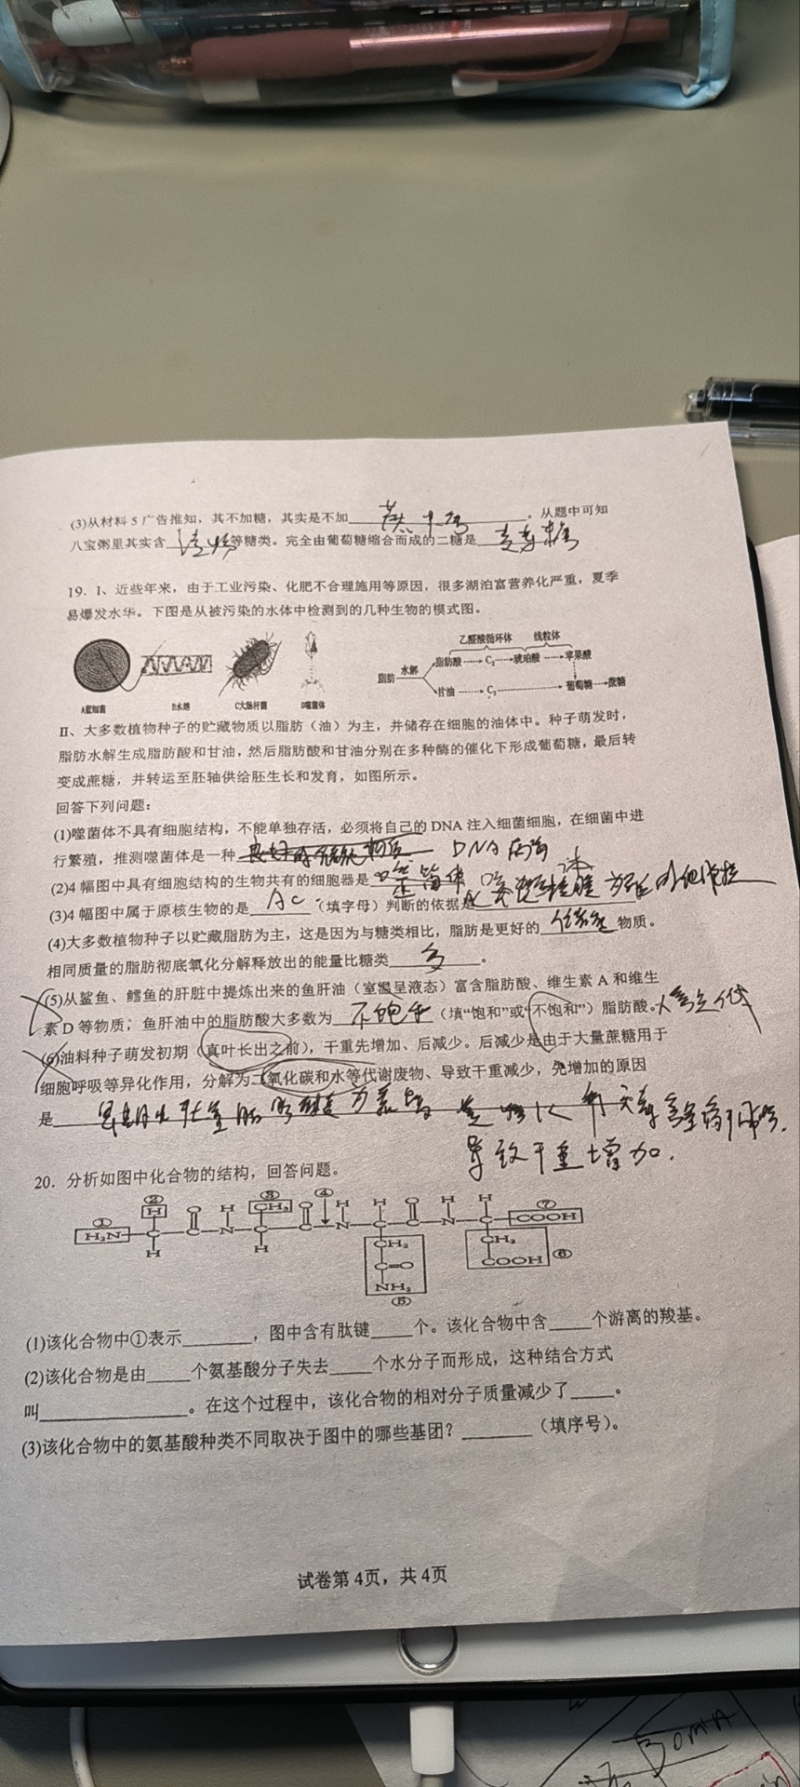 (3)从材料5广告推知，其不加糖，其实是不加 蔗糖 。从题中可知
八宝粥里其实含 淀粉 等糖类。完全由葡萄糖缩合而成的二糖是 麦芽糖
19．I、近些年来，由于工业污染、化肥不合理施用等原因，很多湖泊富营养化严重，夏季
易爆发水华。下图是从被污染的水体中检测到的几种生物的模式图。
A蓝细菌 B水绵 C大肠杆菌 D噬菌体
乙醛酸循环体 线粒体
脂肪 水解 脂肪酸 C₂ 琥珀酸 苹果酸
甘油 C₃ 葡萄糖 蔗糖
II、大多数植物种子的贮藏物质以脂肪（油）为主，并储存在细胞的油体中。种子萌发时，
脂肪水解生成脂肪酸和甘油，然后脂肪酸和甘油分别在多种酶的催化下形成葡萄糖，最后转
变成蔗糖，并转运至胚轴供给胚生长和发育，如图所示。
回答下列问题：
(1)噬菌体不具有细胞结构，不能单独存活，必须将自己的DNA注入细菌细胞，在细菌中进
行繁殖，推测噬菌体是一种 DNA病毒
(2)4幅图中具有细胞结构的生物共有的细胞器是
(3)4幅图中属于原核生物的是 AC （填字母）判断的依据是
(4)大多数植物种子以贮藏脂肪为主，这是因为与糖类相比，脂肪是更好的 储能 物质。
相同质量的脂肪彻底氧化分解释放出的能量比糖类 多 。
(5)从鲨鱼、鳕鱼的肝脏中提炼出来的鱼肝油（室温呈液态）富含脂肪酸、维生素A和维生
素D等物质；鱼肝油中的脂肪酸大多数为 不饱和 （填“饱和”或“不饱和”）脂肪酸。
(6)油料种子萌发初期（真叶长出之前），干重先增加、后减少。后减少是由于大量蔗糖用于
细胞呼吸等异化作用，分解为二氧化碳和水等代谢废物、导致干重减少，先增加的原因
是
导致干重增加.
20．分析如图中化合物的结构，回答问题。
① H₂N ② H ③ CH₃ ④ ⑦ COOH
CH₂ CH₂
C=O COOH ⑥
NH₂
⑤
(1)该化合物中①表示______，图中含有肽键____个。该化合物中含____个游离的羧基。
(2)该化合物是由____个氨基酸分子失去____个水分子而形成，这种结合方式
叫____________。在这个过程中，该化合物的相对分子质量减少了____。
(3)该化合物中的氨基酸种类不同取决于图中的哪些基团？______（填序号）。
试卷第4页，共4页
BOMA